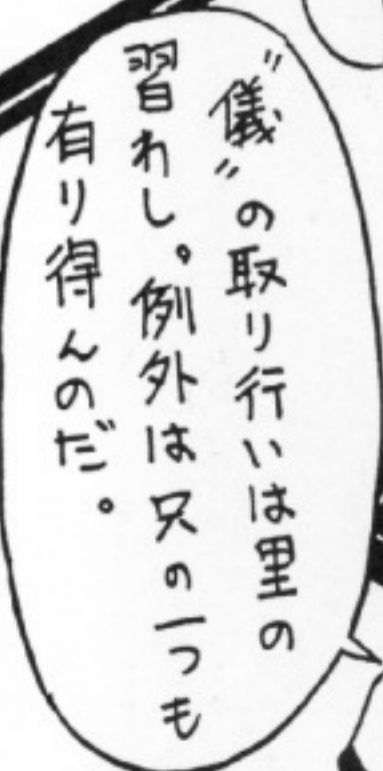 〝儀〟の取り行いは里の
習わし。例外は只の一つも
有り得んのだ。